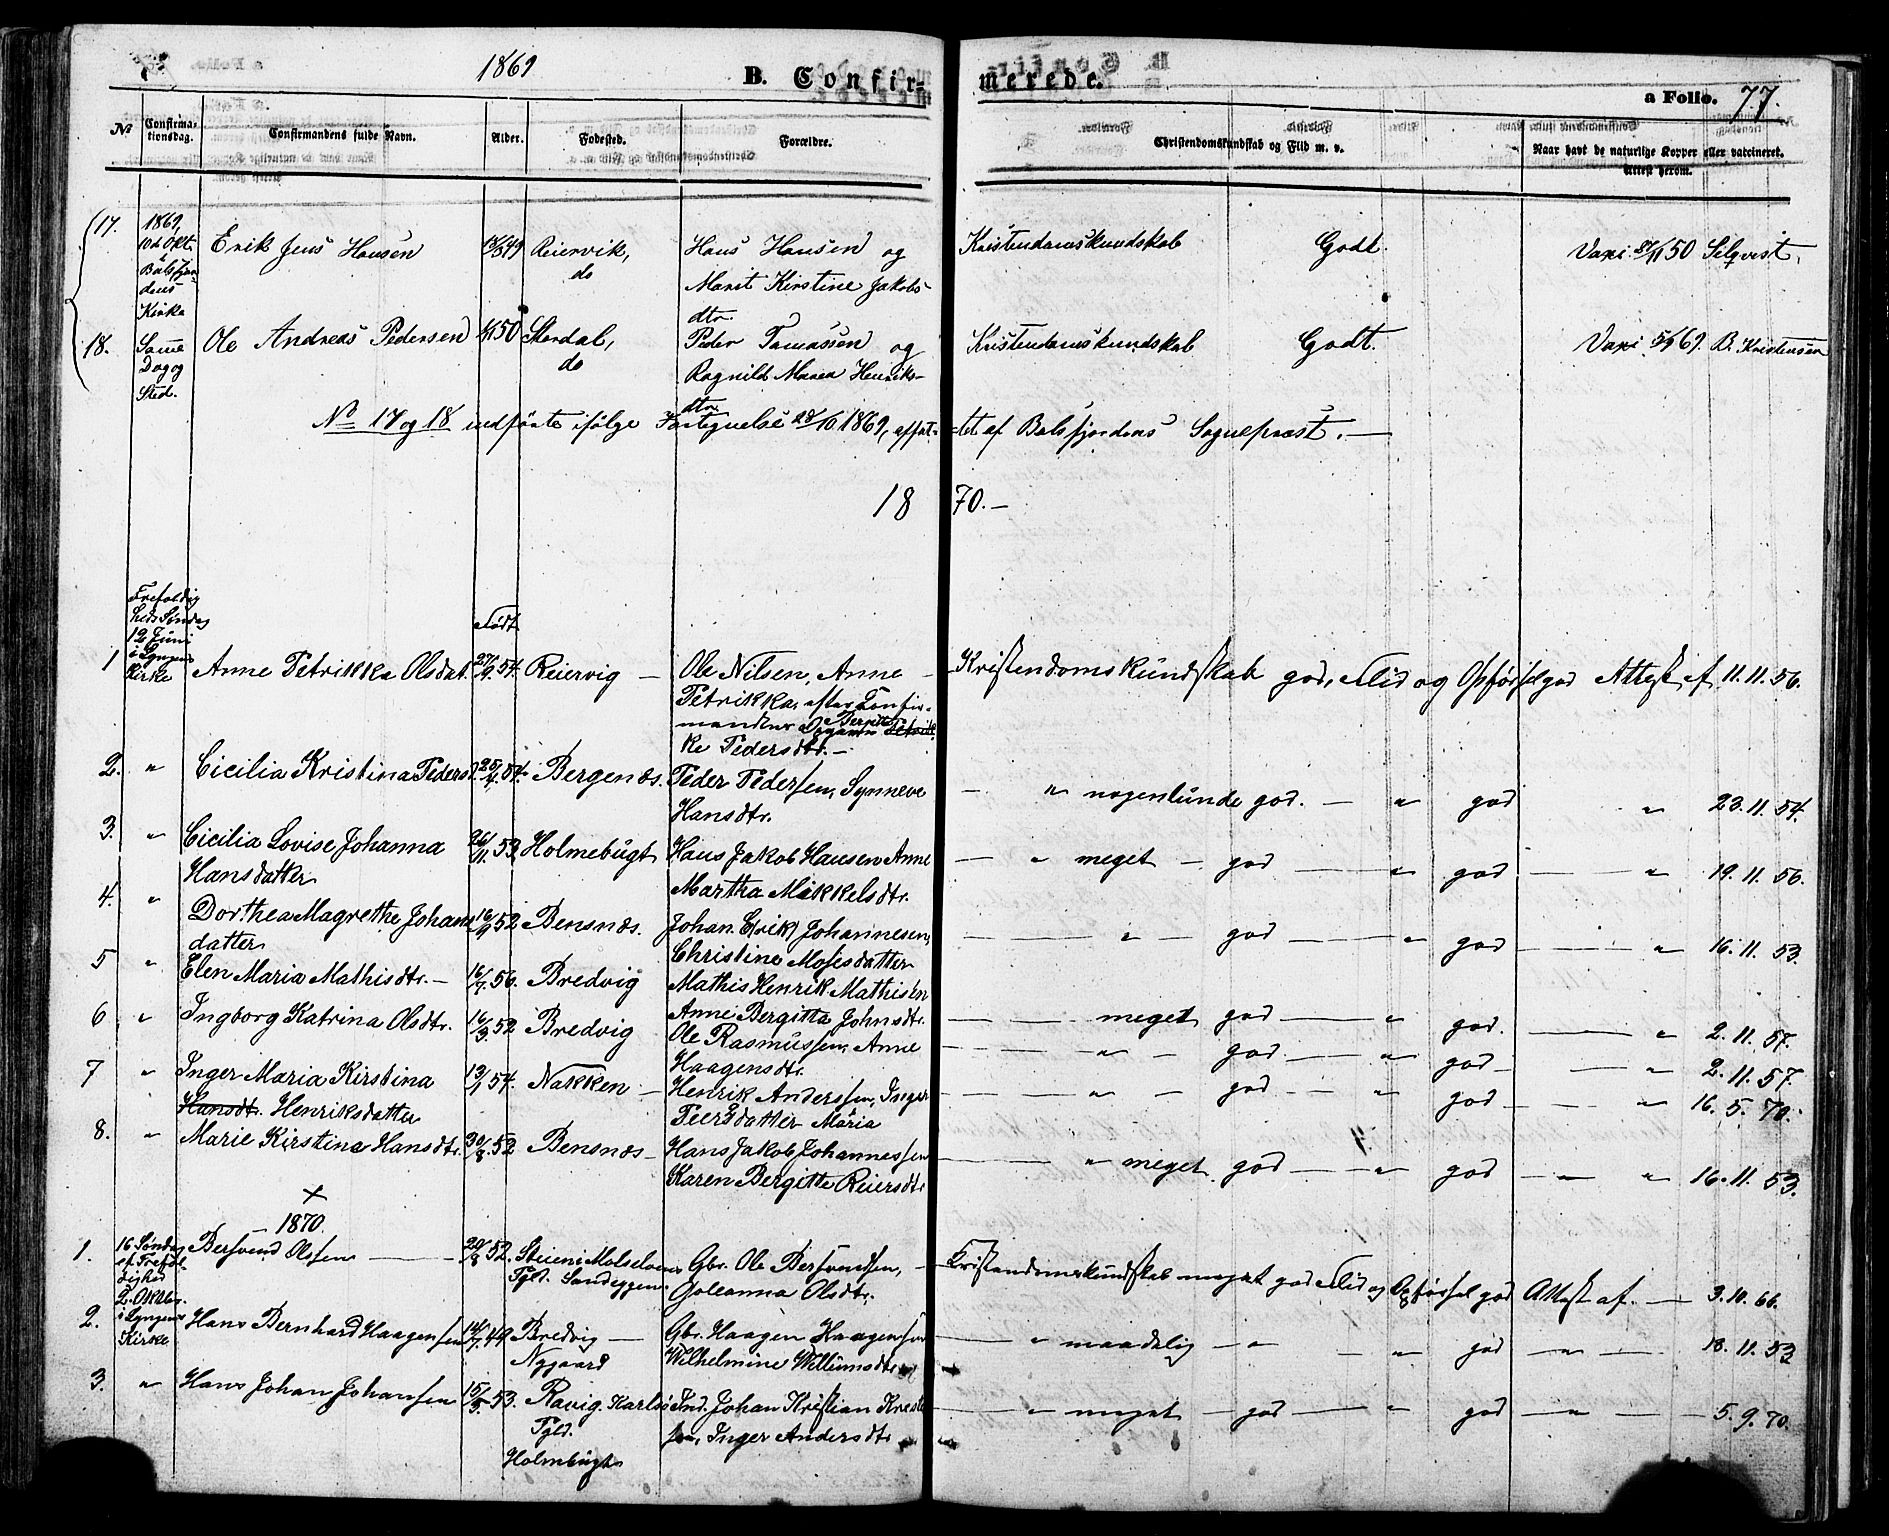 1869
B. Confir-
merede.
a Folio. 77.
No
Confirma-
tionsdag.
Confirmandens fulde Navn.
Alder.
Fødested.
Forældre.
Christendomskundskab og Flid m. v.
Naar havt de naturlige Kopper eller vaccineret.
Attest herom.
17. 1869, Erik Jens Hansen Reiervik, Hans Hansen og Kristendomskundskab Godt. Silqvist.
10d Okt. do Marit Kirstine Jakobs-
i Balsfjor- dtr.
dens
Kirke
18. Same Ole Andreas Pedersen Stordal, Peder Tomassen og Kristendomskundskab Godt. B. Kristensen
Dag og do Ragnild Maren Henriks-
Sted. dtr.
No 17 og 18 indførte ifølge Fortegnelse 28/10 1869, affat-
tet af Balsfjordens Sognepræst.—
18 70.—
Trefoldig
heds Søndag Født
12 Juni
i Lyngens
Kirke
1 Anne Petrikka Olsdat. 27/9 54. Reiervig — Ole Nilsen, Anne — Kristendomskundskab god, Flid og Opførsel god Attest af 11.11.56.
Petrikka, efter Confir-
mandens
ke Pedersdtr.—
2. " Cicilia Kristina Pedersd. 54. Bergenæs. Peder Pedersen, Synneve — " nogenlunde god. — " god " 23.11.54.
Hansdtr.
3. " Cicilia Lovise Johanna 26/11 53. Holmebugt Hans Jakob Hansen Anne — " meget — god — " god — " 19.11.56.
Hansdatter Martha Mikkelsdtr.
4. " Dorthea Magrethe Johans 52 Bensnæs. Johan Erik Johannesen, — " — god — " god — " 16.11.53.
datter Christine Mosesdatter
5 " Elen Maria Mathisdtr. — 16/7 56. Bredvig Mathis Henrik Mathisen — meget god — " god. — " 2.11.57.
Anne Bergitta Johnsdtr.
6 " Ingborg Katrina Olsdtr. 16/3 52 Bredvig Ole Rasmussen, Anne — " — god — " god — " 2.11.57.
Haagensdtr.
7 " Inger Maria Kirstina 13/1 54. Nakken — Henrik Anderssen, Inger — " — god — " god — " 16.5.70.
Hansdt. Henriksdatter Peersdatter Maria
8. " Marie Kirstina Hansdtr. 30/8 52 Bensnæs — Hans Jakob Johannessen — " meget god — " god — " " 16.11.53.
Karen Bergitte Reiersdtr.
×
1870.
1. 16 Søndag Bersvend Olsen — 20/8 52. Steien i Molselven Gbr. Ole Bersvendsen, — Kristendomskundskab meget god Flid og Opførsel god Attest af. — 3.10.66.
ef. Trefol- Fgld. Sandeggen Goleanna Olsdtr.
dighed
2. Oktbr.
i Lyngens
Kirke
2. Hans Bernhard Haagensen 14/7 49 Bredvig — Gbr. Haagen Haagensen — " maadelig — " — " god — " — 18.11.53
Nygaard Wilhelmine Willumsdtr.
3. " Hans Johan Johansen 15/3 53. Ravig. Karlsø Ind. Johan Kristian — " meget — god — " god — " — 5.9.70.
Fgld. Inger Andersdtr.
Holmbugt